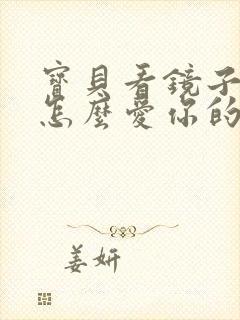 寶貝看鏡子
怎麼愛你的
姜妍